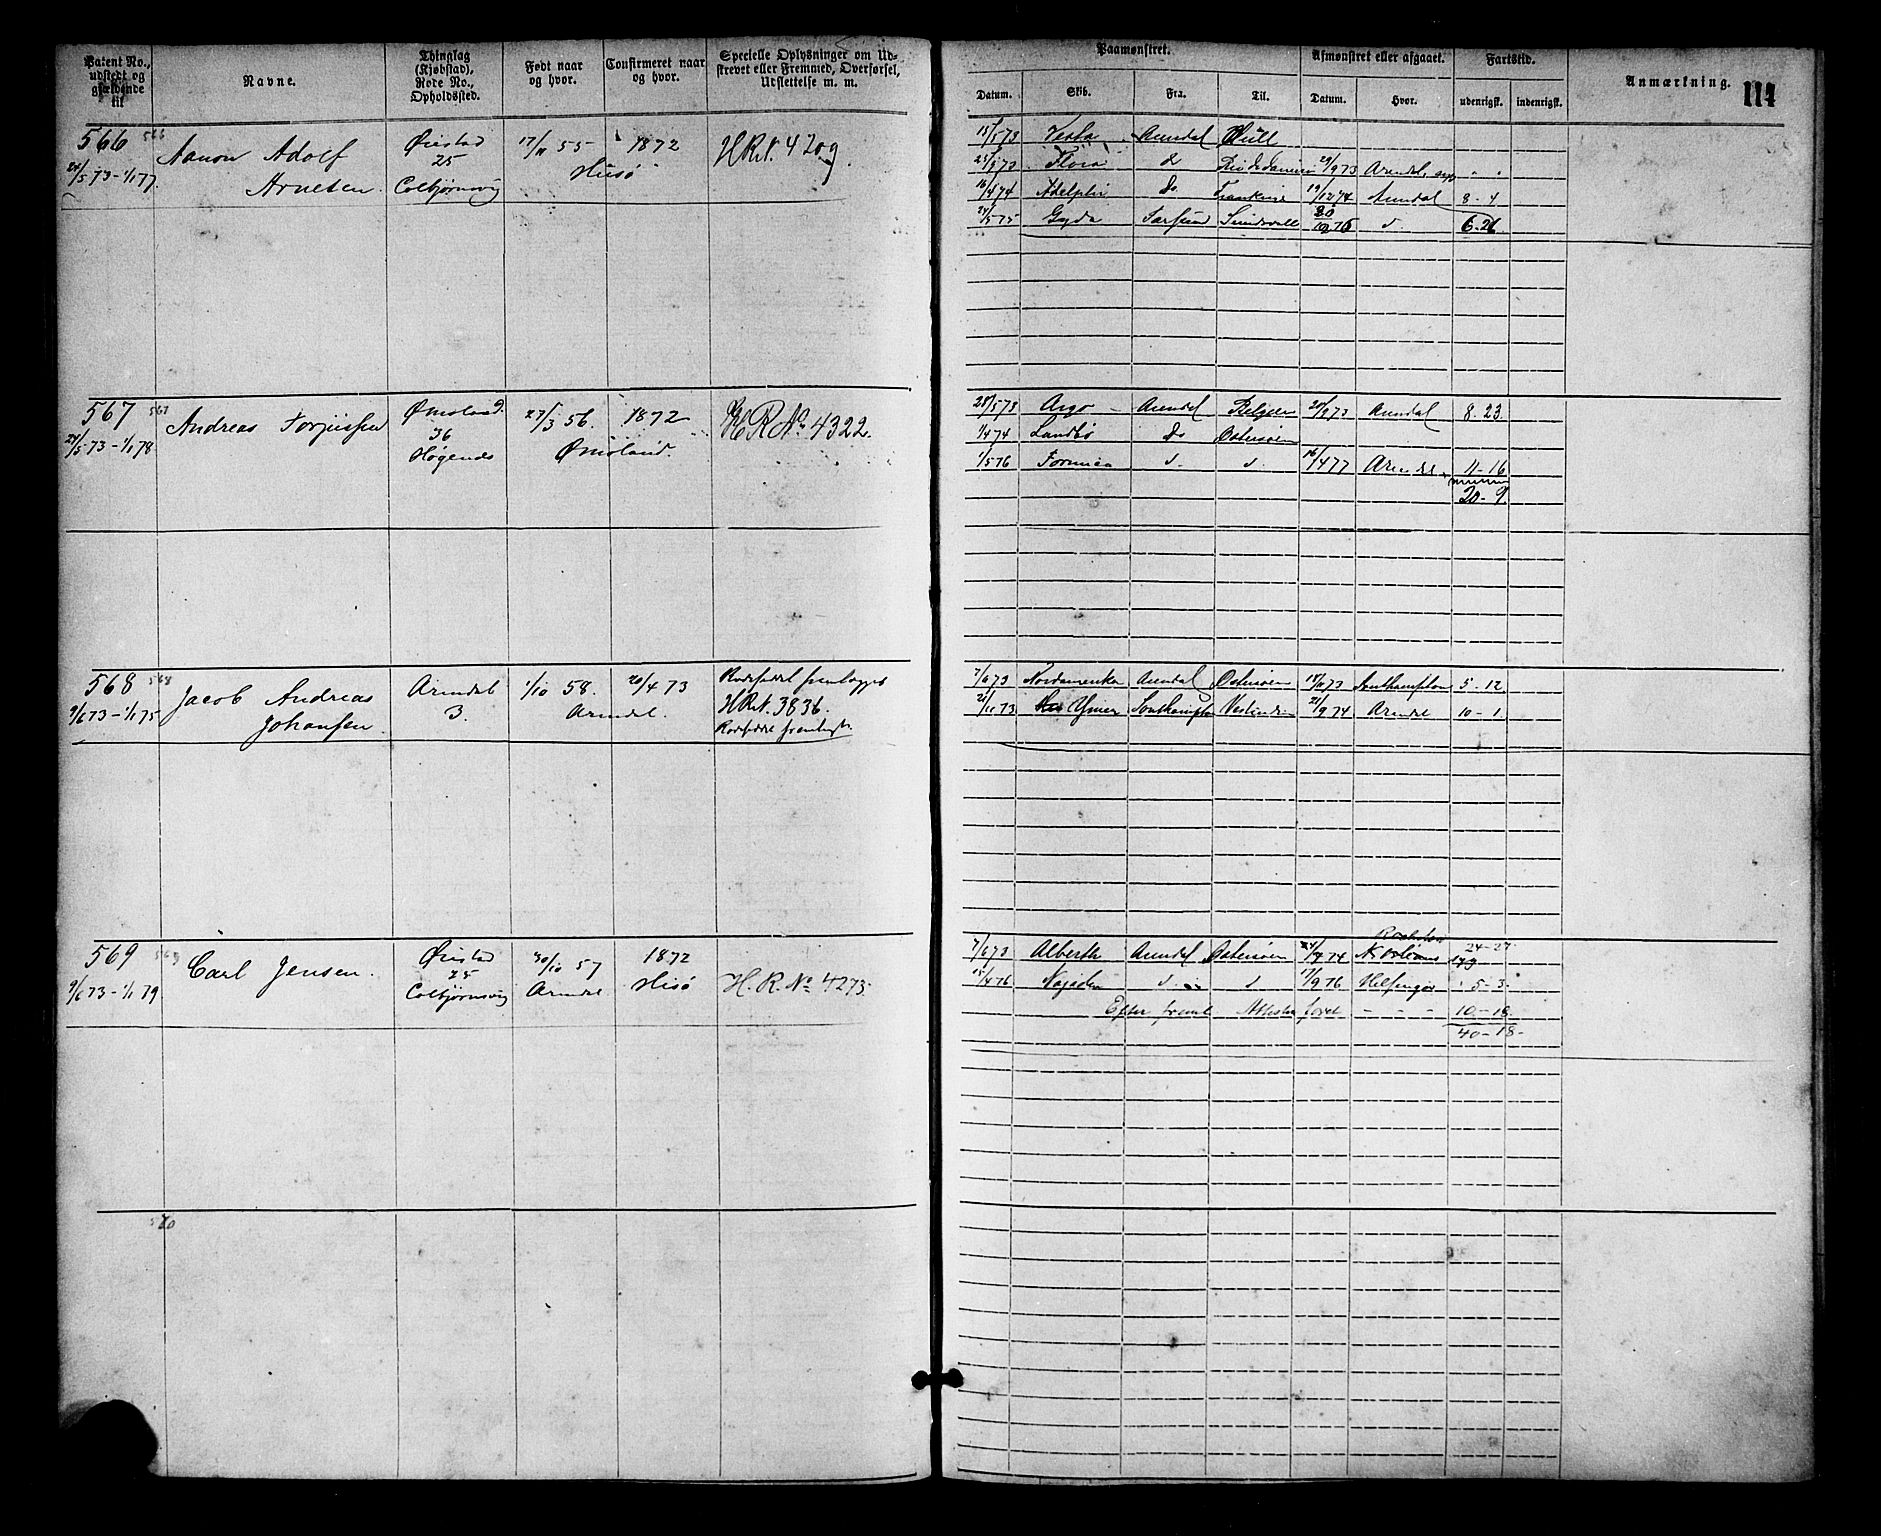 Patent No., udstedt og gjældende til
Navne.
Thinglag (Kjøbstad), Rode No., Opholdssted.
Født naar og hvor.
Confirmeret naar og hvor.
Specielle Oplysninger om Udskrevet eller Fremmed, Overførsel, Udslettelse m. m.
Paamønstret.
Datum. Skib. Fra. Til.
Afmønstret eller afgaaet.
Datum. Hvor.
Fartstid.
udenrigsk. indenrigsk.
Anmærkning.
114
566 566 Aanon Adolf Øiestad 17/11 55 1872 H.R.N. 4209
24/5 73-1/1 77 Arnesen. 25 Hisø
Colbjørnsvig
15/5 73 Vesta Arendal Hull
25/9 73 Flora d 29/9 73 Arendal " "
16/4 74 Adelphi do 19/12 74 Arendal 8-4
24/5 75 Gyda Sundsvall 20/10 76 d. 6-26
567 567 Andreas Torjussen Ømoland 27/3 56. 1872 H.R.No. 4322.
24/5 73-1/1 78 36 Ømoland.
28/5 73 Argo Arendal Belgien 20/9 73 Arendal 8. 23
1/4 74 Landbø do Østersøen
1/5 76 d. d. 16/4 77 Arendal 11-16
20-9.
568 568 Jacob Andreas Arendal 1/10 58. 20/4 73 Rodeseddel fremlagges
9/6 73-1/1 75 Johansen 3. Arendal. H.R.N. 3836.
Rodeseddel fremlagt.
7/6 73 Nordamerika Arendal Østersøen 18/11 73 Southampton 5-12
21/11 73 Ymer Southampton Vestindien 21/9 74 Arendal 10-1.
569 569 Carl Jensen. Øiestad 30/10 57 1872 H.R.No 4273.
9/6 73-1/1 79 25 Arendal Hisø
Colbjørnsvig
7/6 73 Alberth Arendal Østersøen 24/7 74 N. Orleans 24-27
15/4 76 Najaden d. d 17/9 76 Helsingør 5-3
Efter freml Attester faret - - - 10-18.
40-18-
570